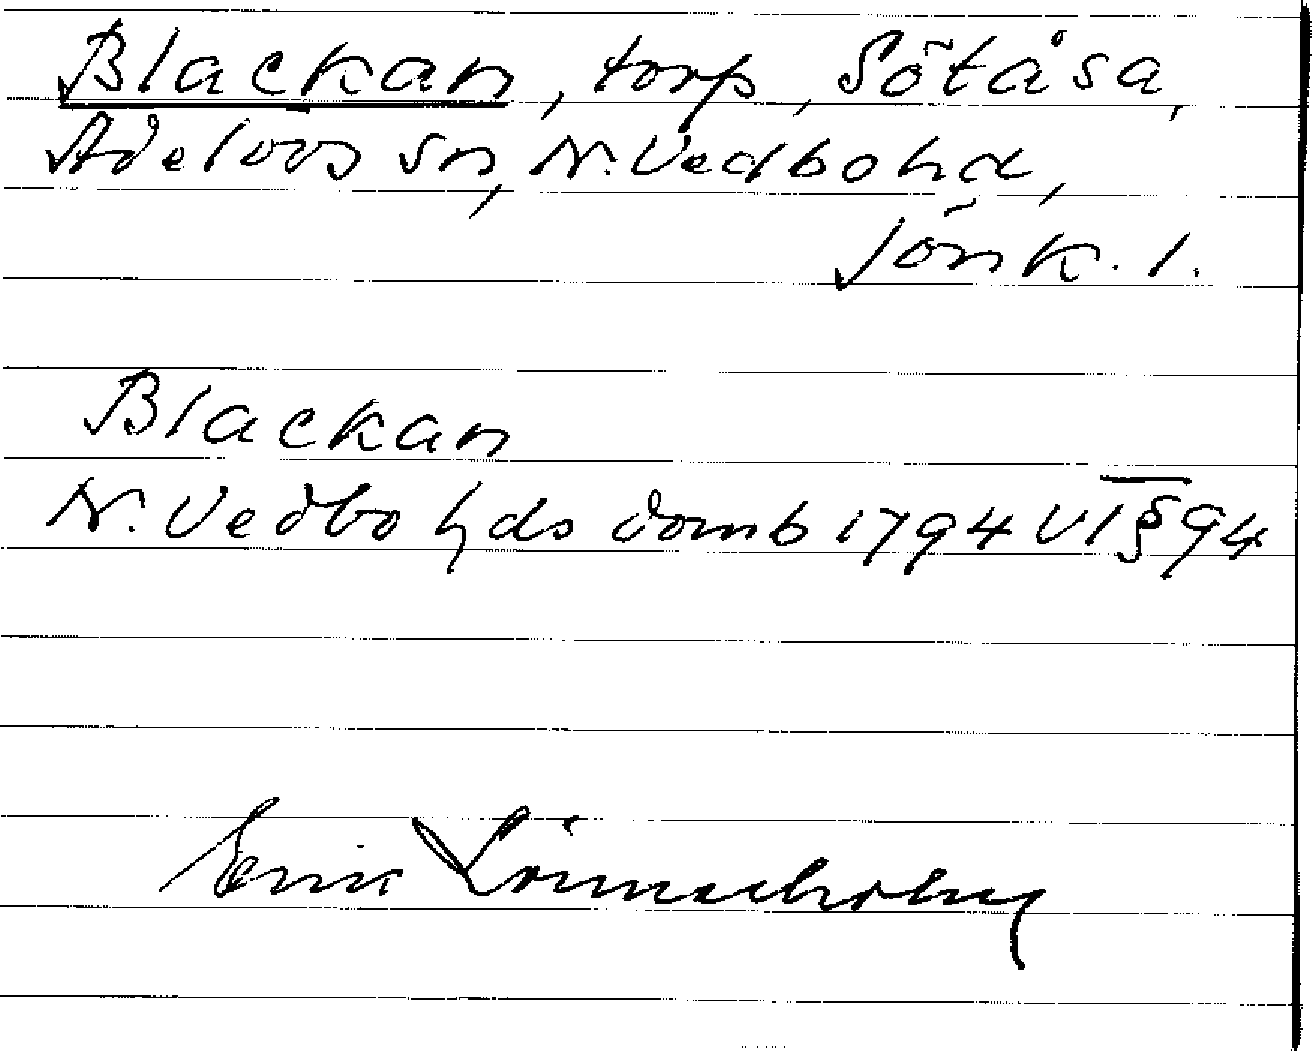 Blackan, torp, Sötåsa,
Adelövs sn, N. Vedbo hd,
Jönk. l.
Blackan
N. Vedbo hds domb 1794 VI § 94
Erik Lönnerholm